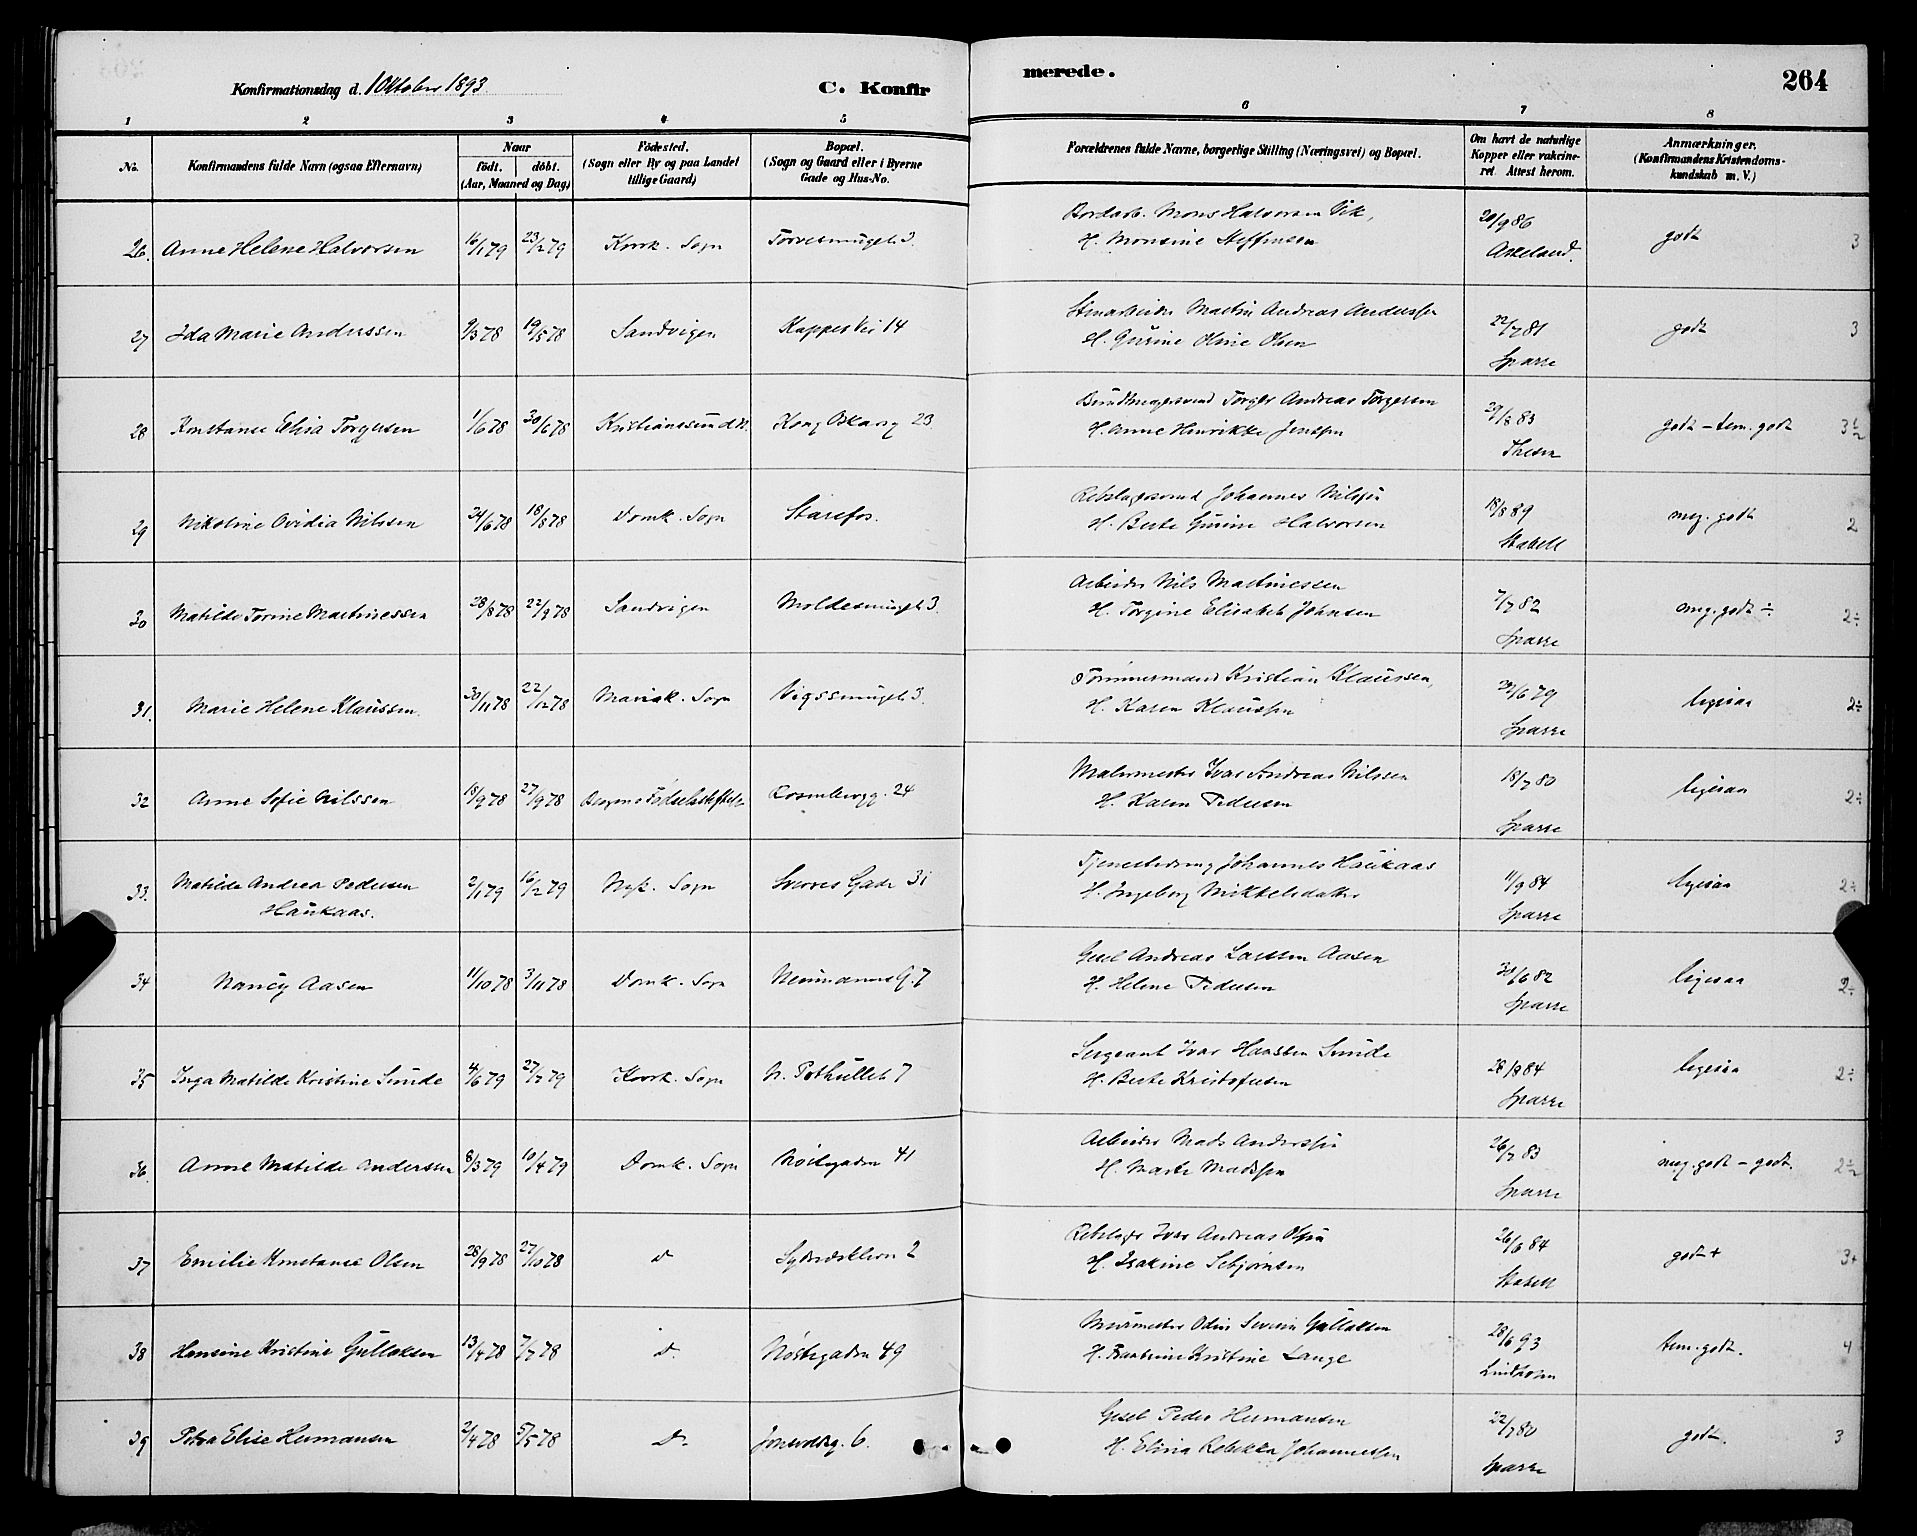 Konfirmationsdag d. 1 Oktober 1893
C. Konfirmerede.
264
1 2 3 4 5 6 7 8
No. Konfirmandens fulde Navn (ogsaa Efternavn) Naar födt. döbt. (Aar, Maaned og Dag) Födested. (Sogn eller By og paa Landet tillige Gaard) Bopæl. (Sogn og Gaard eller i Byerne Gade og Hus-No. Forældrenes fulde Navne, borgerlige Stilling (Næringsvei) og Bopæl. Om havt de naturlige Kopper eller vakcineret. Attest herom. Anmærkninger. (Konfirmandens Kristendomskundskab m. V.)
26. Anne Helene Halvorsen 16/1 79 23/2 79 Korsk. Sogn Torvesmuget 3. Bordarb. Mons Halvorsen Vik, 20/9 86 godt 3
H. Monsine Steffensen Askeland.
27 Ida Marie Anderssen 9/3 78 19/5 78 Sandvigen Kappes Vei 14 Stenarbeider Martin Andreas Anderssen 22/7 81 godt 3
H. Gurine Oline Olsen Sparre
28 Konstanse Elisa Torgersen 1/6 78 30/6 78 Kristianssund N. Kong Oskarsg 23 Torger Andreas Torgersen 29/8 83 godt - tem. godt 3½
H. Anne Henrikke Jenssen Thesen
29 Nikoline Ovidia Nilssen 24/6 78 18/8 78 Domk. Sogn Starefos. Rebslagersvend Johannes Nilssen 18/8 89 meg. godt 2
H. Berte Gurine Halvorsen Stabell
30 Matilde Torine Martinessen 28/8 78 22/9 78 Sandvigen Moldesmuget 3. Arbeider Nils Martinessen 7/7 82 meg. godt ÷ 2÷
H. Torgine Elisabeth Johnsen Sparre
31. Marie Helene Klaussen 30/11 78 22/12 78 Mariak. Sogn Vigssmuget 3. Tømmermand Kristian Klaussen, 27/6 79 ligesaa 2÷
H. Karen Klaussen Sparre
32 Anne Sofie Nilssen 18/9 78 27/9 78 Bergens Fødselsstiftelse Rosenbergg. 24 Malermester Ivar Andreas Nilssen 18/7 80 ligesaa 2÷
H. Karen Pedersen Sparre
33. Matilde Andrea Pedersen Haukaas. 2/1 79 16/2 79 Nyk. Sogn Sverres Gade 31 Tjenestedreng Johannes Haukaas 11/9 84 ligesaa 2÷
H. Ingeborg Mikkelsdatter Sparre
34 Nancy Aasen 11/10 78 3/11 78 Domk. Sogn Neumanns G. 7 Gesel Andreas Larssen Aasen 30/6 82 ligesaa 2÷
H. Helene Pedersen Sparre
35 Inga Matilde Kristine Sunde 4/6 79 27/7 79 Korsk. Sogn N. Blekhullet 7 Sergeant Ivar Hanssen Sunde 28/8 84 ligesaa 2÷
H. Berte Kristofersen Sparre
36. Anne Matilde Anderssen 8/3 79 10/4 79 Domk. Sogn Nøstegaden 41 Arbeider Mads Anderssen 26/7 83 meg. godt - godt. 2½
H. Marte Madssen Sparre
37 Emilie Konstanse Olsen 28/9 78 27/10 78 Do Sydnæskleven 2 Rebslager Ivar Andreas Olsen 26/6 84 godt + 3+
H. Isakine Sebjørnsen Stabell
38 Hansine Kristine Gullaksen 13/4 78 7/7 78 Do. Nøstegaden 49 Murmester Odin Severin Gullaksen 28/6 93 tem. godt. 4
Kristine Lange Lindholm
39 Petra Elise Hermansen 2/4 78 5/5 78 Do Jonsvoldsg. 6. Gesel Peder Hermansen 22/7 80 godt. 3
H. Elina Rebekka Johannessen Sparre